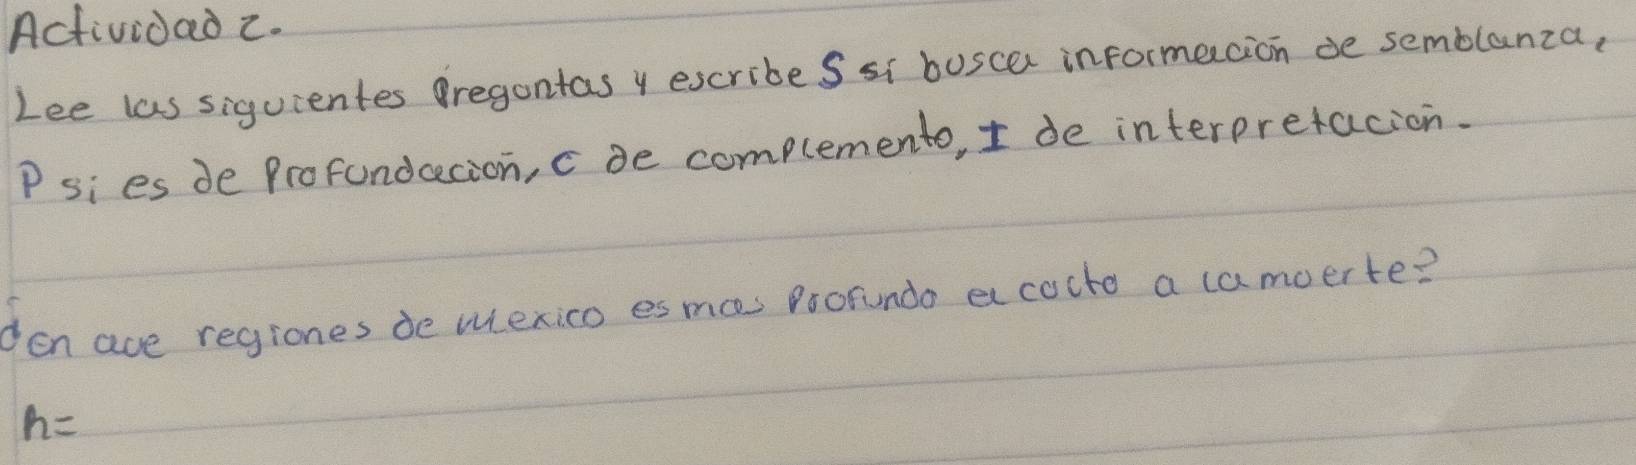 Actividad 2.
Lee las siguientes Pregontas y escribe S si busca información de semblanza,
P si es de Profundación, C de complemento, I de interpretación.
¿En que regiones de Mexico es mas Profundo el cocto a la moerte?
h=